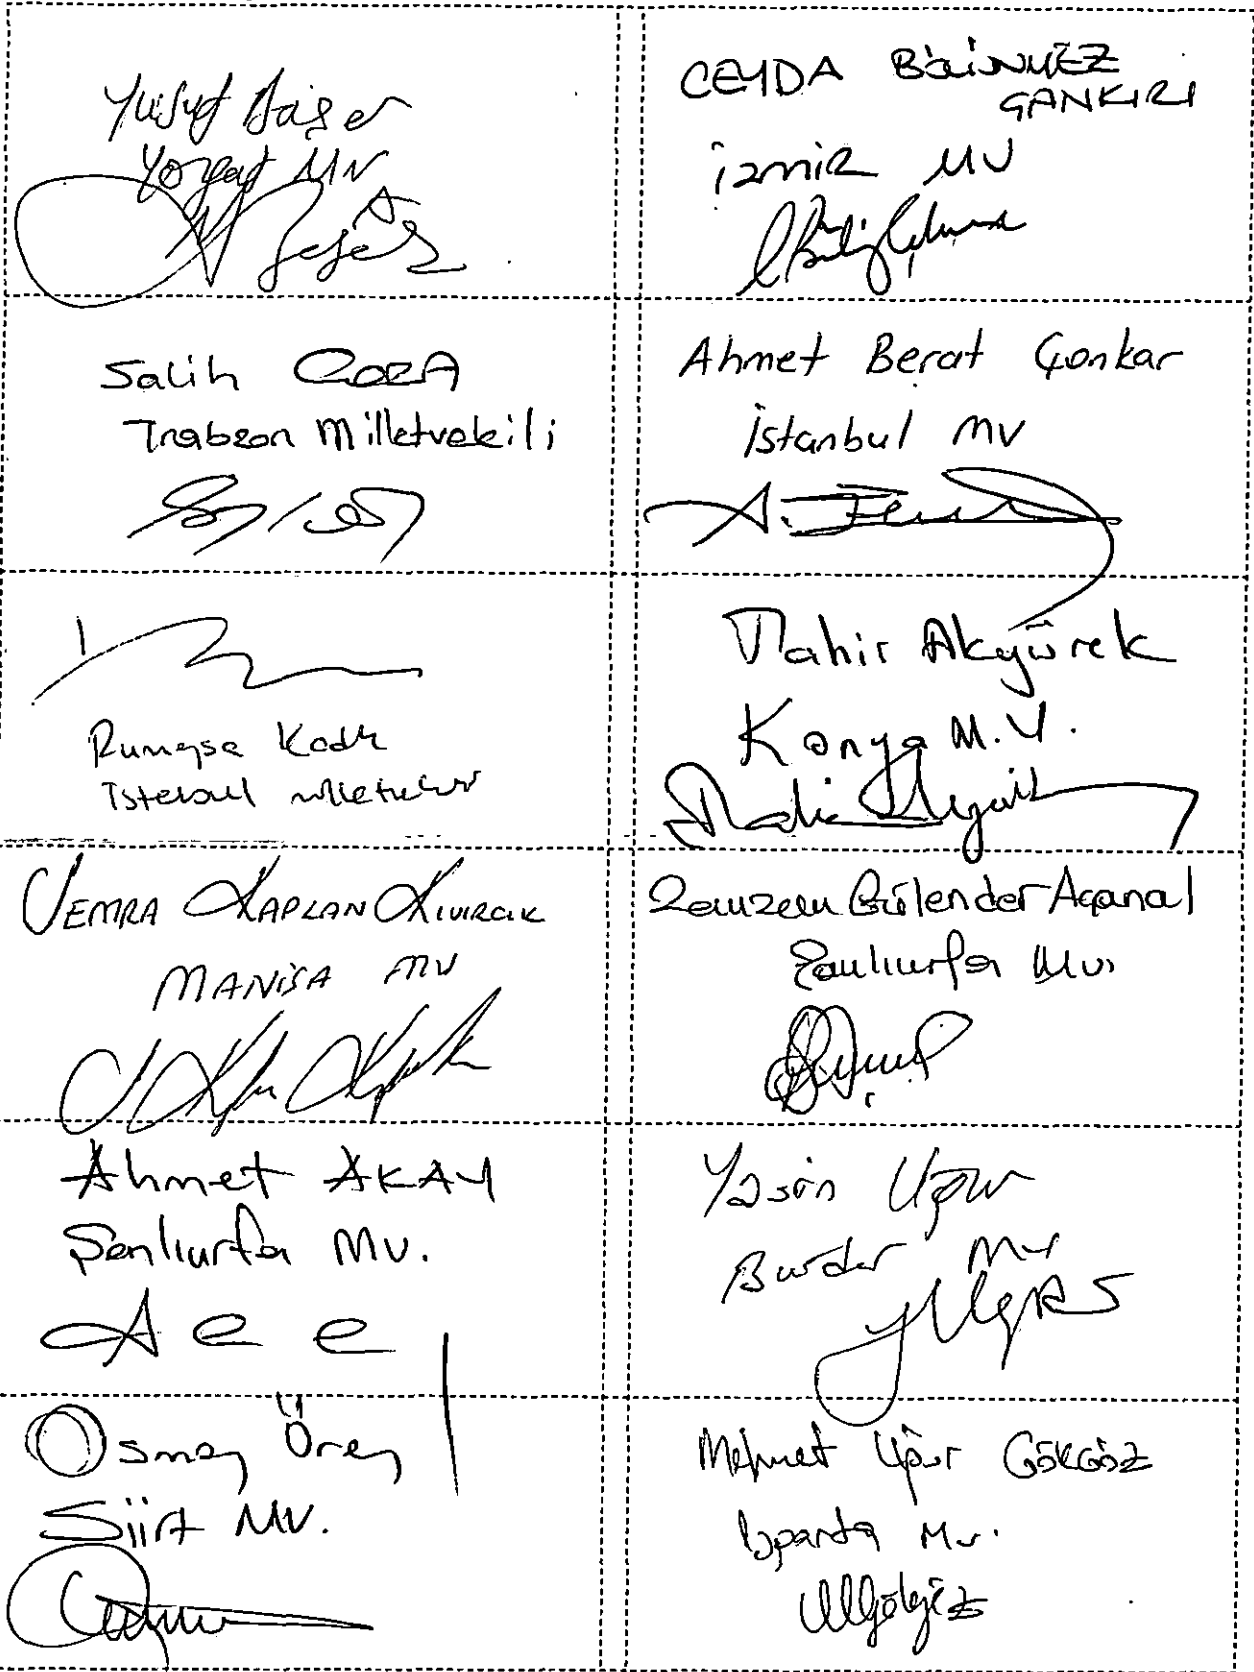 Yusuf Başer
Yozgat MV
CEYDA BÖLÜNMEZ
ÇANKIRI
İzmir MV
Salih CORA
Trabzon Milletvekili
Ahmet Berat Çonkar
İstanbul MV
Rumeysa Kadak
İstanbul Milletvekili
Tahir Akyürek
Konya M.V.
SEMRA KAPLAN KIVIRCIK
MANİSA MV
Zemzem Gülender Açanal
Şanlıurfa Mv.
Ahmet AKAY
Şanlıurfa MV.
Yasin Uğur
Burdur MV
Osman Ören
Siirt MV.
Mehmet Uğur GÖKGÖZ
Isparta Mv.